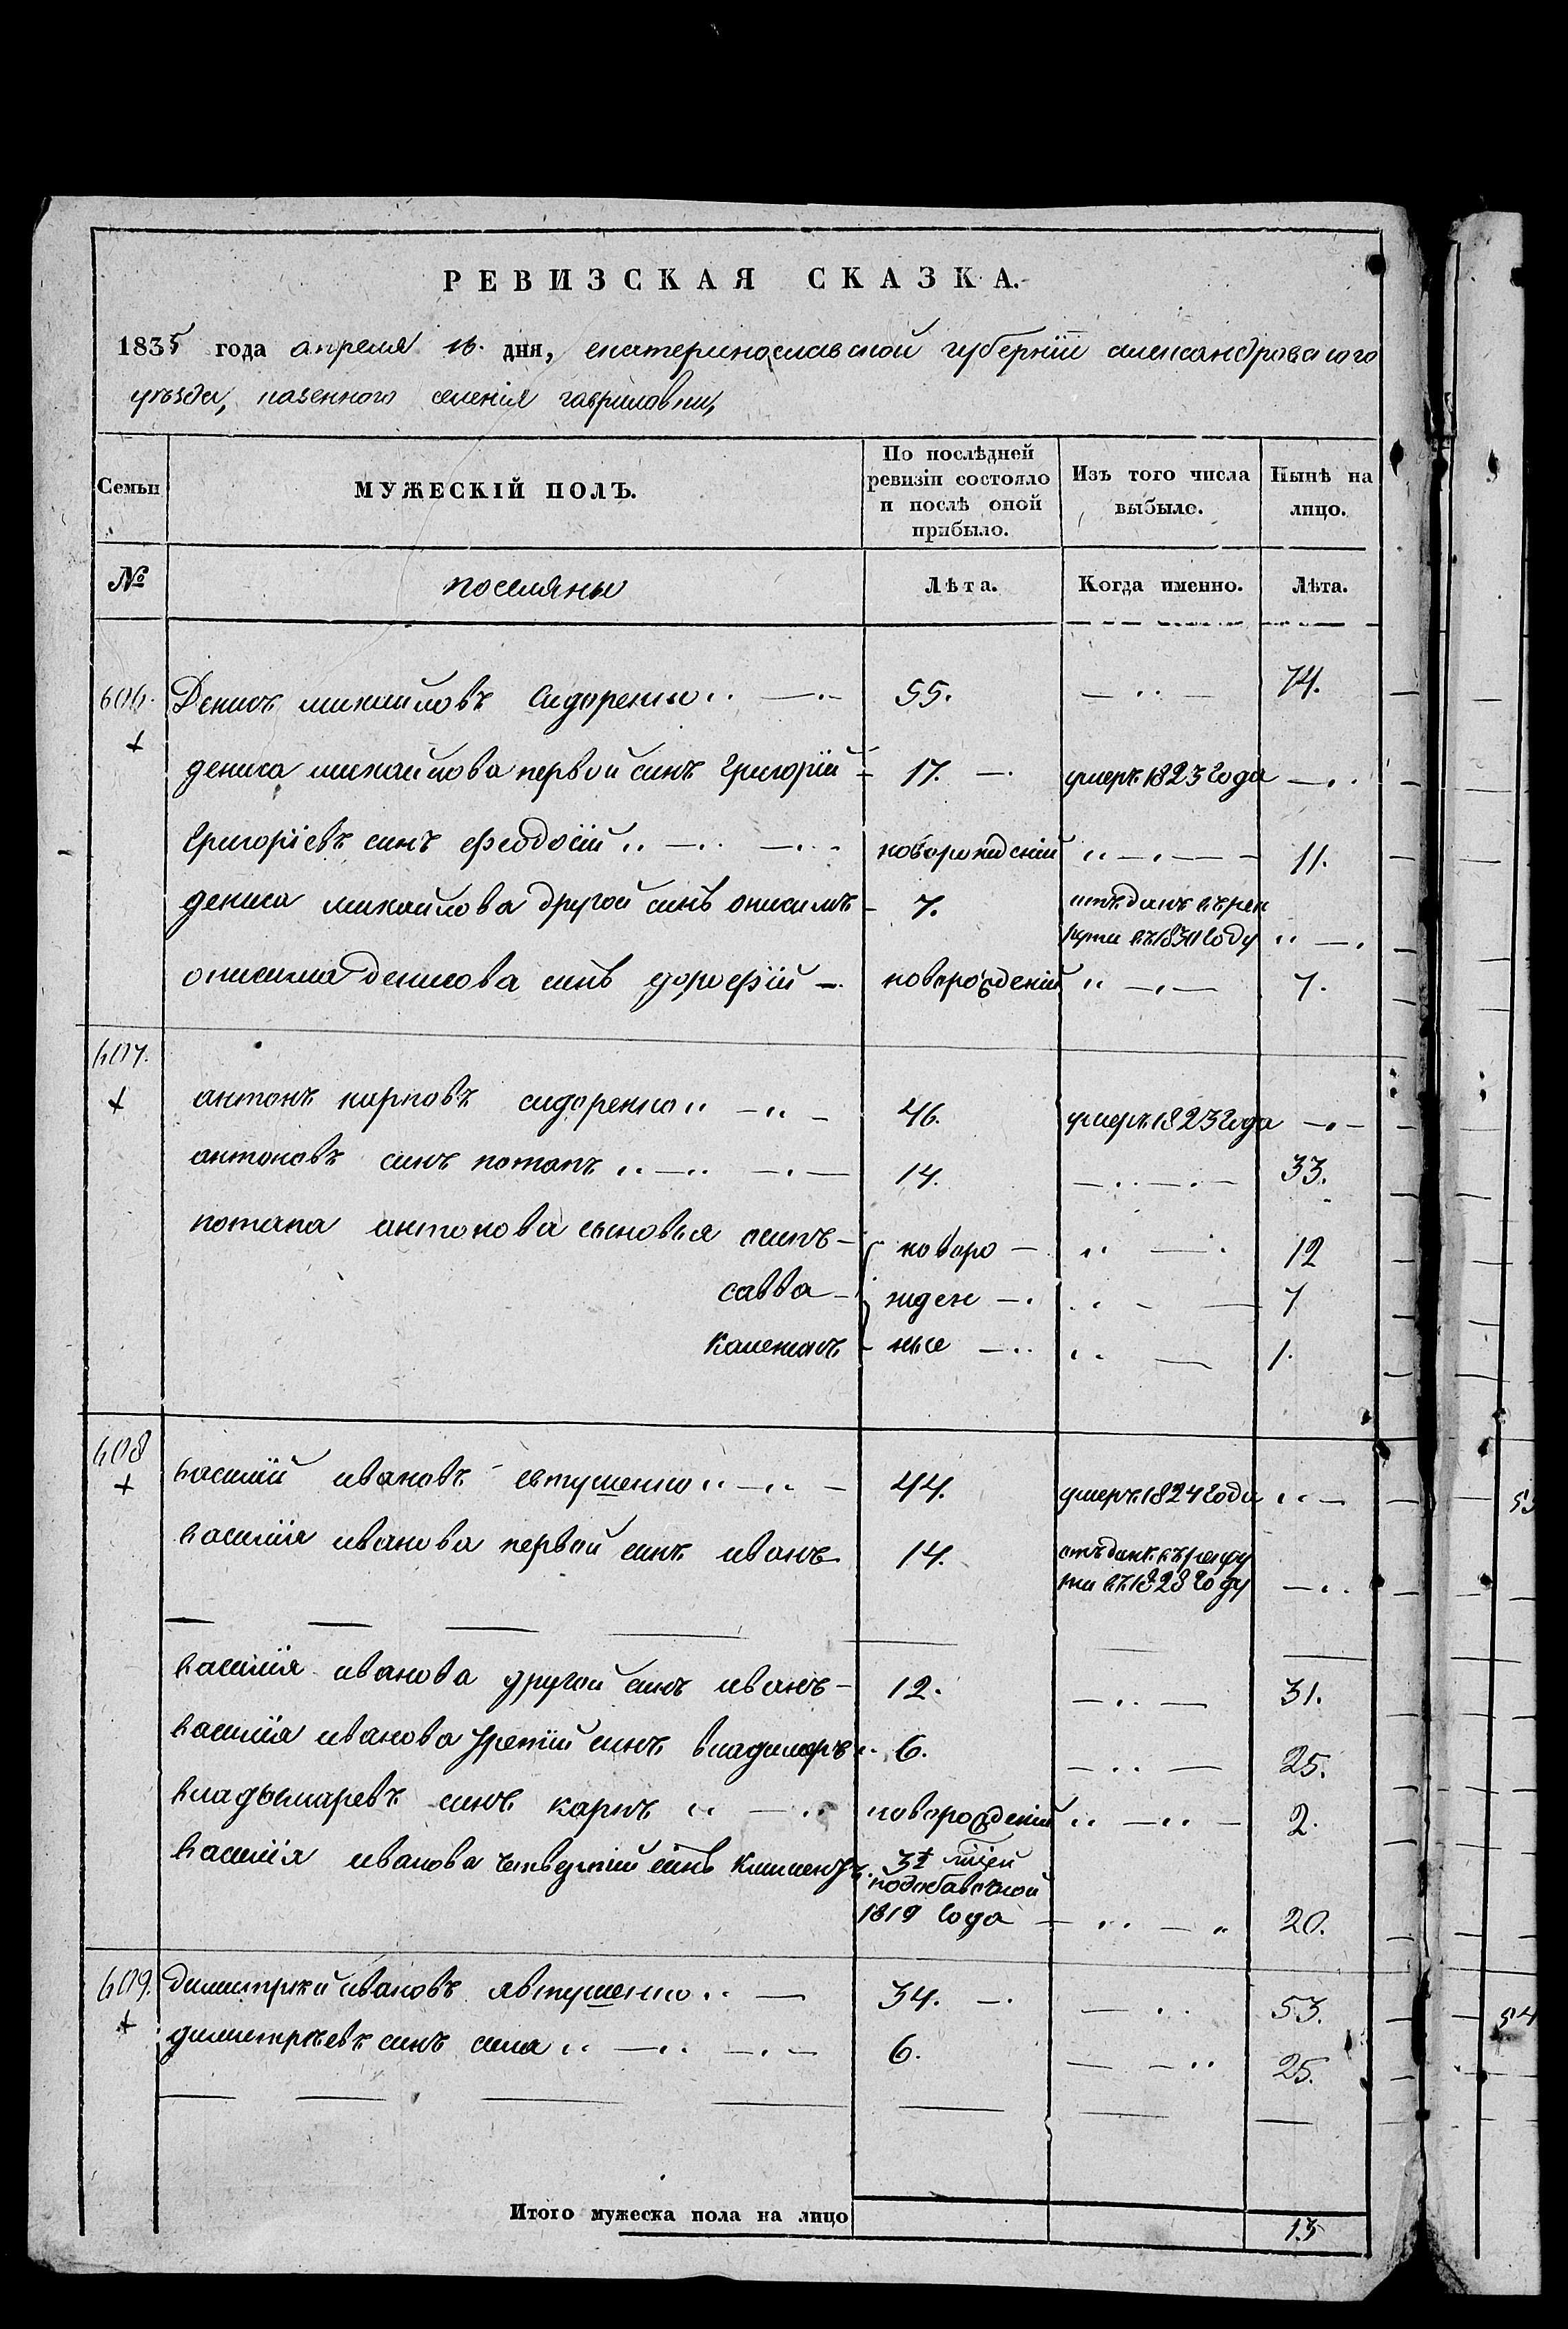 РЕВИЗСКАЯ СКАЗКА.
1835 года апреля 16. дня, екатеринославской губернїи александровского
уѣзда, казенного селенія гавриловки,
Семьи
МУЖЕСКІЙ ПОЛЪ.
По послѣдней ревизіи состояло и послѣ оной прибыло.
Изъ того числа выбыло.
Нынѣ на лицо.
№ поселяны Лѣта. Когда именно. Лѣта.
606. Денисъ михаиловъ Сидоренко 55. 74.
дениса михаилова первой синъ григорїй 17. умеръ 1823 года
григорїевъ синъ феодосїй новорождений 11.
дениса михаилова другой синъ онисимъ 7. отъданъ въ рек
руты въ 1831 году
онисима денисова синъ дорофїй новорожденїй 7.
607. антонъ карповъ сидоренко 46. умеръ 1823 года
антоновъ синъ потапъ 14. 33.
потапа антонова сыновья осипъ новоро 12
савва жден 7
Каленикъ ные 1.
608 василїй ивановъ евтушенко 44. умеръ 1824 года
василїя иванова первой синъ иванъ 14. отъданъ въ рекру
ты въ 1828 году
василїя иванова другой синъ иванъ 12. 31.
василїя иванова третїй синъ владимеръ 6. 25.
владымеревъ синъ карпъ новорожденїй 2.
василїя иванова четвертїй синъ Климентъ 3х
подобавочной
1819 года 20.
609. димитрїй ивановъ явтушенко 34. 53.
димитрїевъ синъ сила 6. 25.
Итого мужеска пола на лицо 13